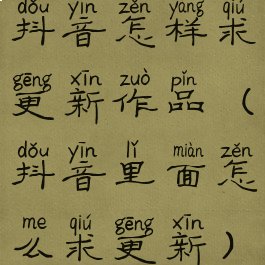 dǒu yīn zěn yàng qiú
抖音怎样求
gēng xīn zuò pǐn
更新作品（
dǒu yīn lǐ miàn zěn
抖音里面怎
me qiú gēng xīn
么求更新）